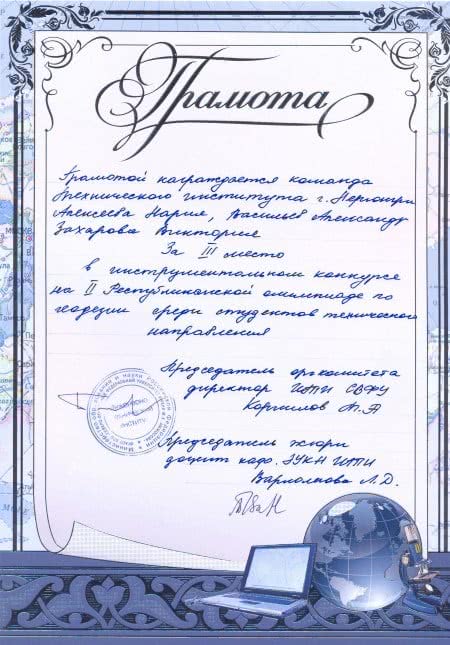 Грамота
Грамотой награждается команда
Технического института г. Нерюнгри
Алексеева Мария, Васильев Александр
Захарова Виктория
За III место
в инструментальном конкурсе
на II Республиканской олимпиаде по
геодезии среди студентов технического
направления
Председатель оргкомитета
директор ИПИ СВФУ
А
Председатель жюри
доцент каф. ЗУКН ИПИ
Варламова Л.Д.